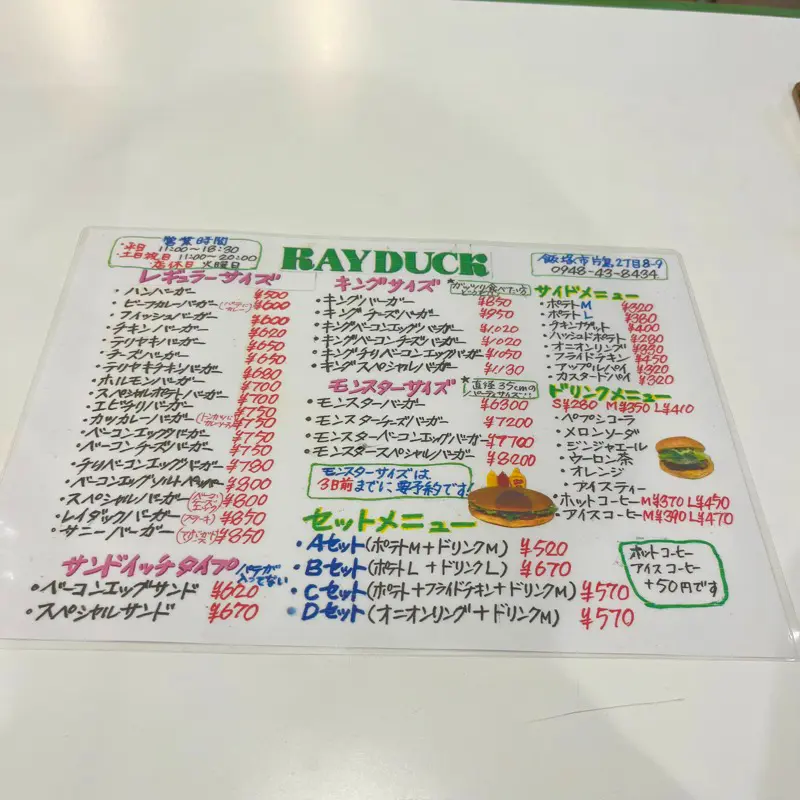 営業時間
平日 11:00〜18:30
土日祝日 11:00〜20:00
店休日 火曜日
RAY DUCK
飯塚市片島2丁目8-9
0948-43-8434
レギュラーサイズ
・ハンバーガー ¥500
・ビーフカレーバーガー ¥600
・フィッシュバーガー ¥600
・チキンバーガー ¥620
・テリヤキバーガー ¥650
・チーズバーガー ¥650
・テリヤキチキンバーガー ¥680
・ホルモンバーガー ¥700
・スペシャルポテトバーガー ¥700
・エビチリバーガー ¥750
・カツカレーバーガー ¥750
・ベーコンエッグバーガー ¥750
・ベーコンチーズバーガー ¥750
・チリベーコンエッグバーガー ¥780
・ベーコンエッグソルトペッパー ¥800
・スペシャルバーガー ¥800
・レイダックバーガー (ステーキ) ¥850
・サニーバーガー ¥850
サンドイッチタイプ パテが入ってない
・ベーコンエッグサンド ¥620
・スペシャルサンド ¥670
キングサイズ
・キングバーガー ¥850
・キングチーズバーガー ¥950
・キングベーコンエッグバーガー ¥1,020
・キングベーコンチーズバーガー ¥1020
・キングチリベーコンエッグバーガー ¥1050
・キングスペシャルバーガー ¥1130
モンスターサイズ
*直径35cmのパーティサイズ!!
・モンスターバーガー ¥6300
・モンスターチーズバーガー ¥7200
・モンスターベーコンエッグバーガー ¥7700
・モンスタースペシャルバーガー ¥8200
モンスターサイズは
3日前までに要予約です!
サイドメニュー
・ポテトM ¥320
・ポテトL ¥380
・チキンナゲット ¥400
・ハッシュドポテト ¥280
・オニオンリング ¥330
・フライドチキン ¥450
・アップルパイ ¥320
・カスタードパイ ¥320
ドリンクメニュー
S¥280 M¥350 L¥410
・ペプシコーラ
・メロンソーダ
・ジンジャエール
・ウーロン茶
・オレンジ
・アイスティー
・ホットコーヒー M¥370 L¥450
・アイスコーヒー M¥390 L¥470
セットメニュー
・Aセット(ポテトM+ドリンクM) ¥520
・Bセット(ポテトL+ドリンクL) ¥670
・Cセット(ポテト+フライドチキン+ドリンクM) ¥570
・Dセット(オニオンリング+ドリンクM) ¥570
ホットコーヒー
アイスコーヒー
+50円です